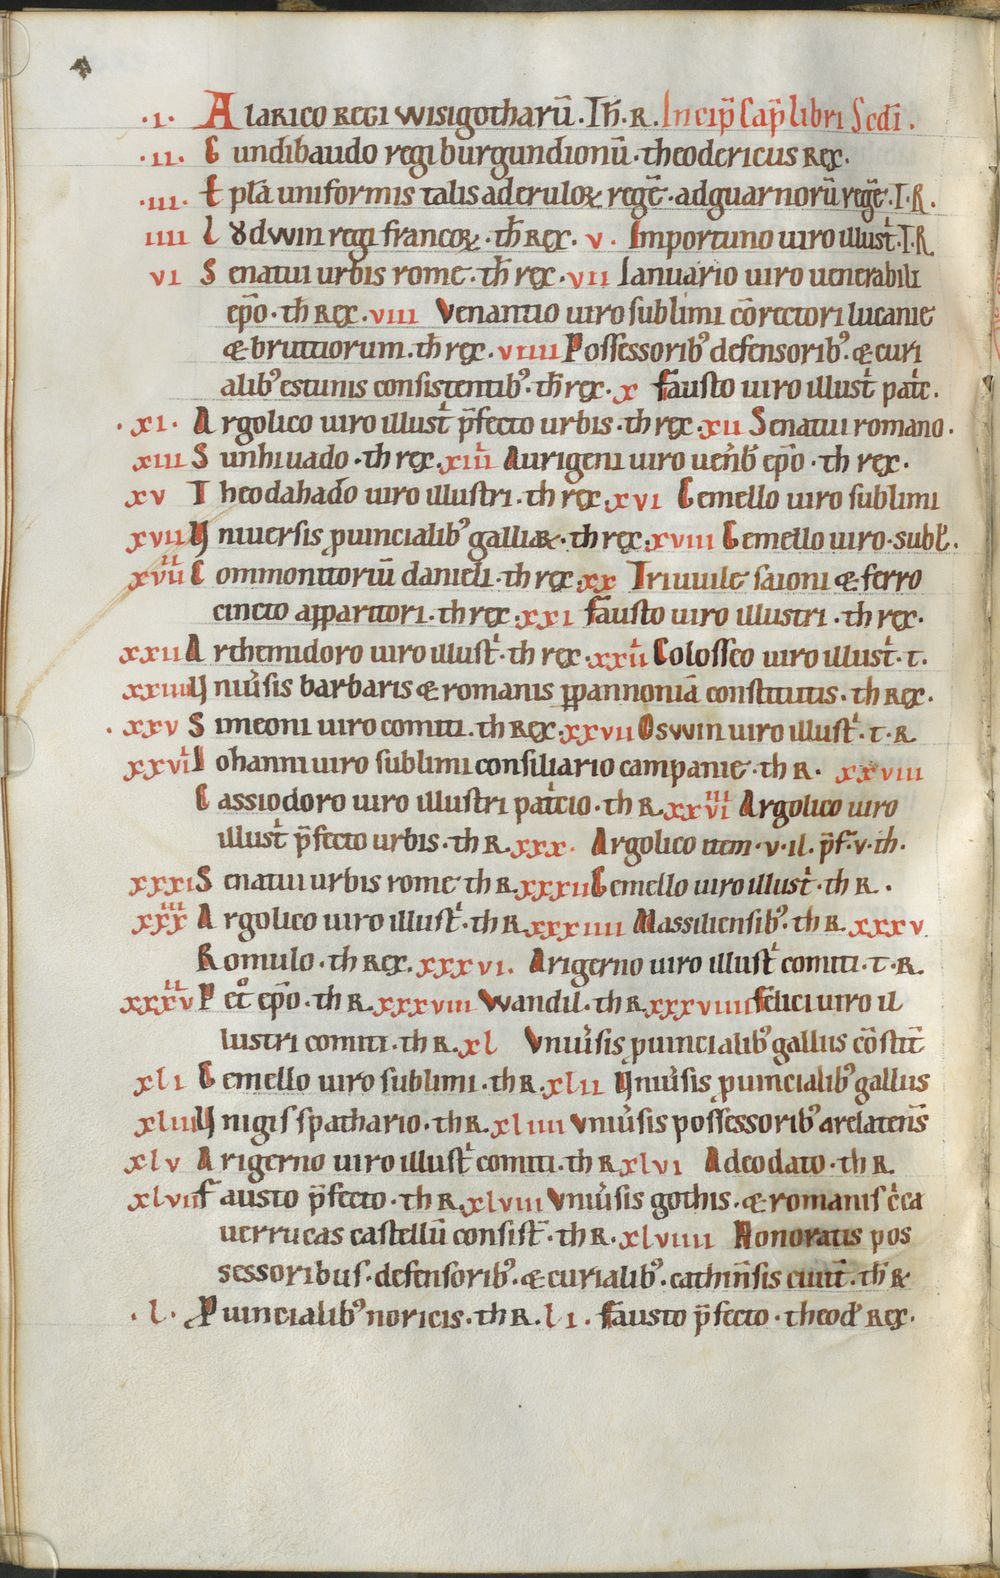 ·I· Alarico regi wisigotharū. Th̄. R. Incip̄ Cap̄ libri Sc̄di.
·II· Gundibaudo regi burgundionū· theodericus rex.
·III· Epła uniformis talis ad eruloꝝ regē· ad guarnorū regē. T. R.
IIII Lꝋdwin regi francoꝝ· th̄ Rex. V. Importuno uiro illust̄. T. R.
VI Senatui urbis rome· th̄ rex· VII Ianuario uiro uenerabili
ep̄o· th̄ Rex. VIII Venantio uiro sublimi cōrectori lucanie
& bruttiorum. th̄ rex· VIIII Possessorib; defensorib;· & curi
alib; estunis consistentib;· th̄ rex· X Fausto uiro illust̄ pat̄c.
·XI· Argolico uiro illust̄ p̄fecto urbis· th rex XII Senatui romano.
XIII Sunhiuado· th rex. XIIII Aurigeni uiro uen̄b ep̄o· th rex.
XV Theodahado uiro illustri· th rex XVI Gemello uiro sublimi
XVII Vniuersis ꝓuincialib; galliaꝝ· th rex XVIII Gemello uiro· subl̄.
XVIIII Commonitoriū danieli· th rex XX Triuuile saioni & ferro
cincto apparitori. th rex· XXI Fausto uiro illustri· th rex.
XXII Arthemidoro uiro illust̄· th rex XXIII Colosseo uiro illust̄· t.
XXIIII Vniūsis barbaris & romanis p̱ pannoniā constitutis· th Rex.
XXV Simeoni uiro comiti. th Rex XXVII Oswin uiro illust̄· t· R
XXVI Iohanni uiro sublimi consiliario campanie· th R. XXVIII
Cassiodoro uiro illustri pat̄cio· th R. XXVIIII Argolico uiro
illust̄ p̄fecto urbis· th R. XXX· Argolico item· v· il. p̄f· v· th.
XXXI Senatui urbis rome th R. XXXII Gemello uiro illust̄· th R.
XXXIII Argolico uiro illust̄· th R XXXIIII Massiliensib;· th R. XXXV
Romulo· th Rex. XXXVI. Arigerno uiro illust̄ comiti· t· R.
XXXVII Pet̊ ep̄o· th R. XXXVIII Wandil· th R. XXXVIIII Felici uiro il
lustri comiti· th R. XL Vniūsis ꝓuincialib; galliis cōstit̄
XLI Gemello uiro sublimi· th R. XLII Vniūsis ꝓuincialib; galliis
XLIII Vnigis spathario· th R. XLIIII Vniūsis possessorib; arelatens̄
XLV Arigerno uiro illust̄ comiti· th R XLVI Adeodato· th R.
XLVII Fausto p̄fecto· th R. XLVIII Vniūsis gothis· & romanis c̄ca
uerrucas castellū consist̄· th R. XLVIIII Honoratis pos
sessoribus· defensorib;· & curialib;· cathin̄sis ciuit̄· th̄ R
·L· Ꝓuincialib; noricis· th R. LI· Fausto p̄fecto· theod̄ Rex.